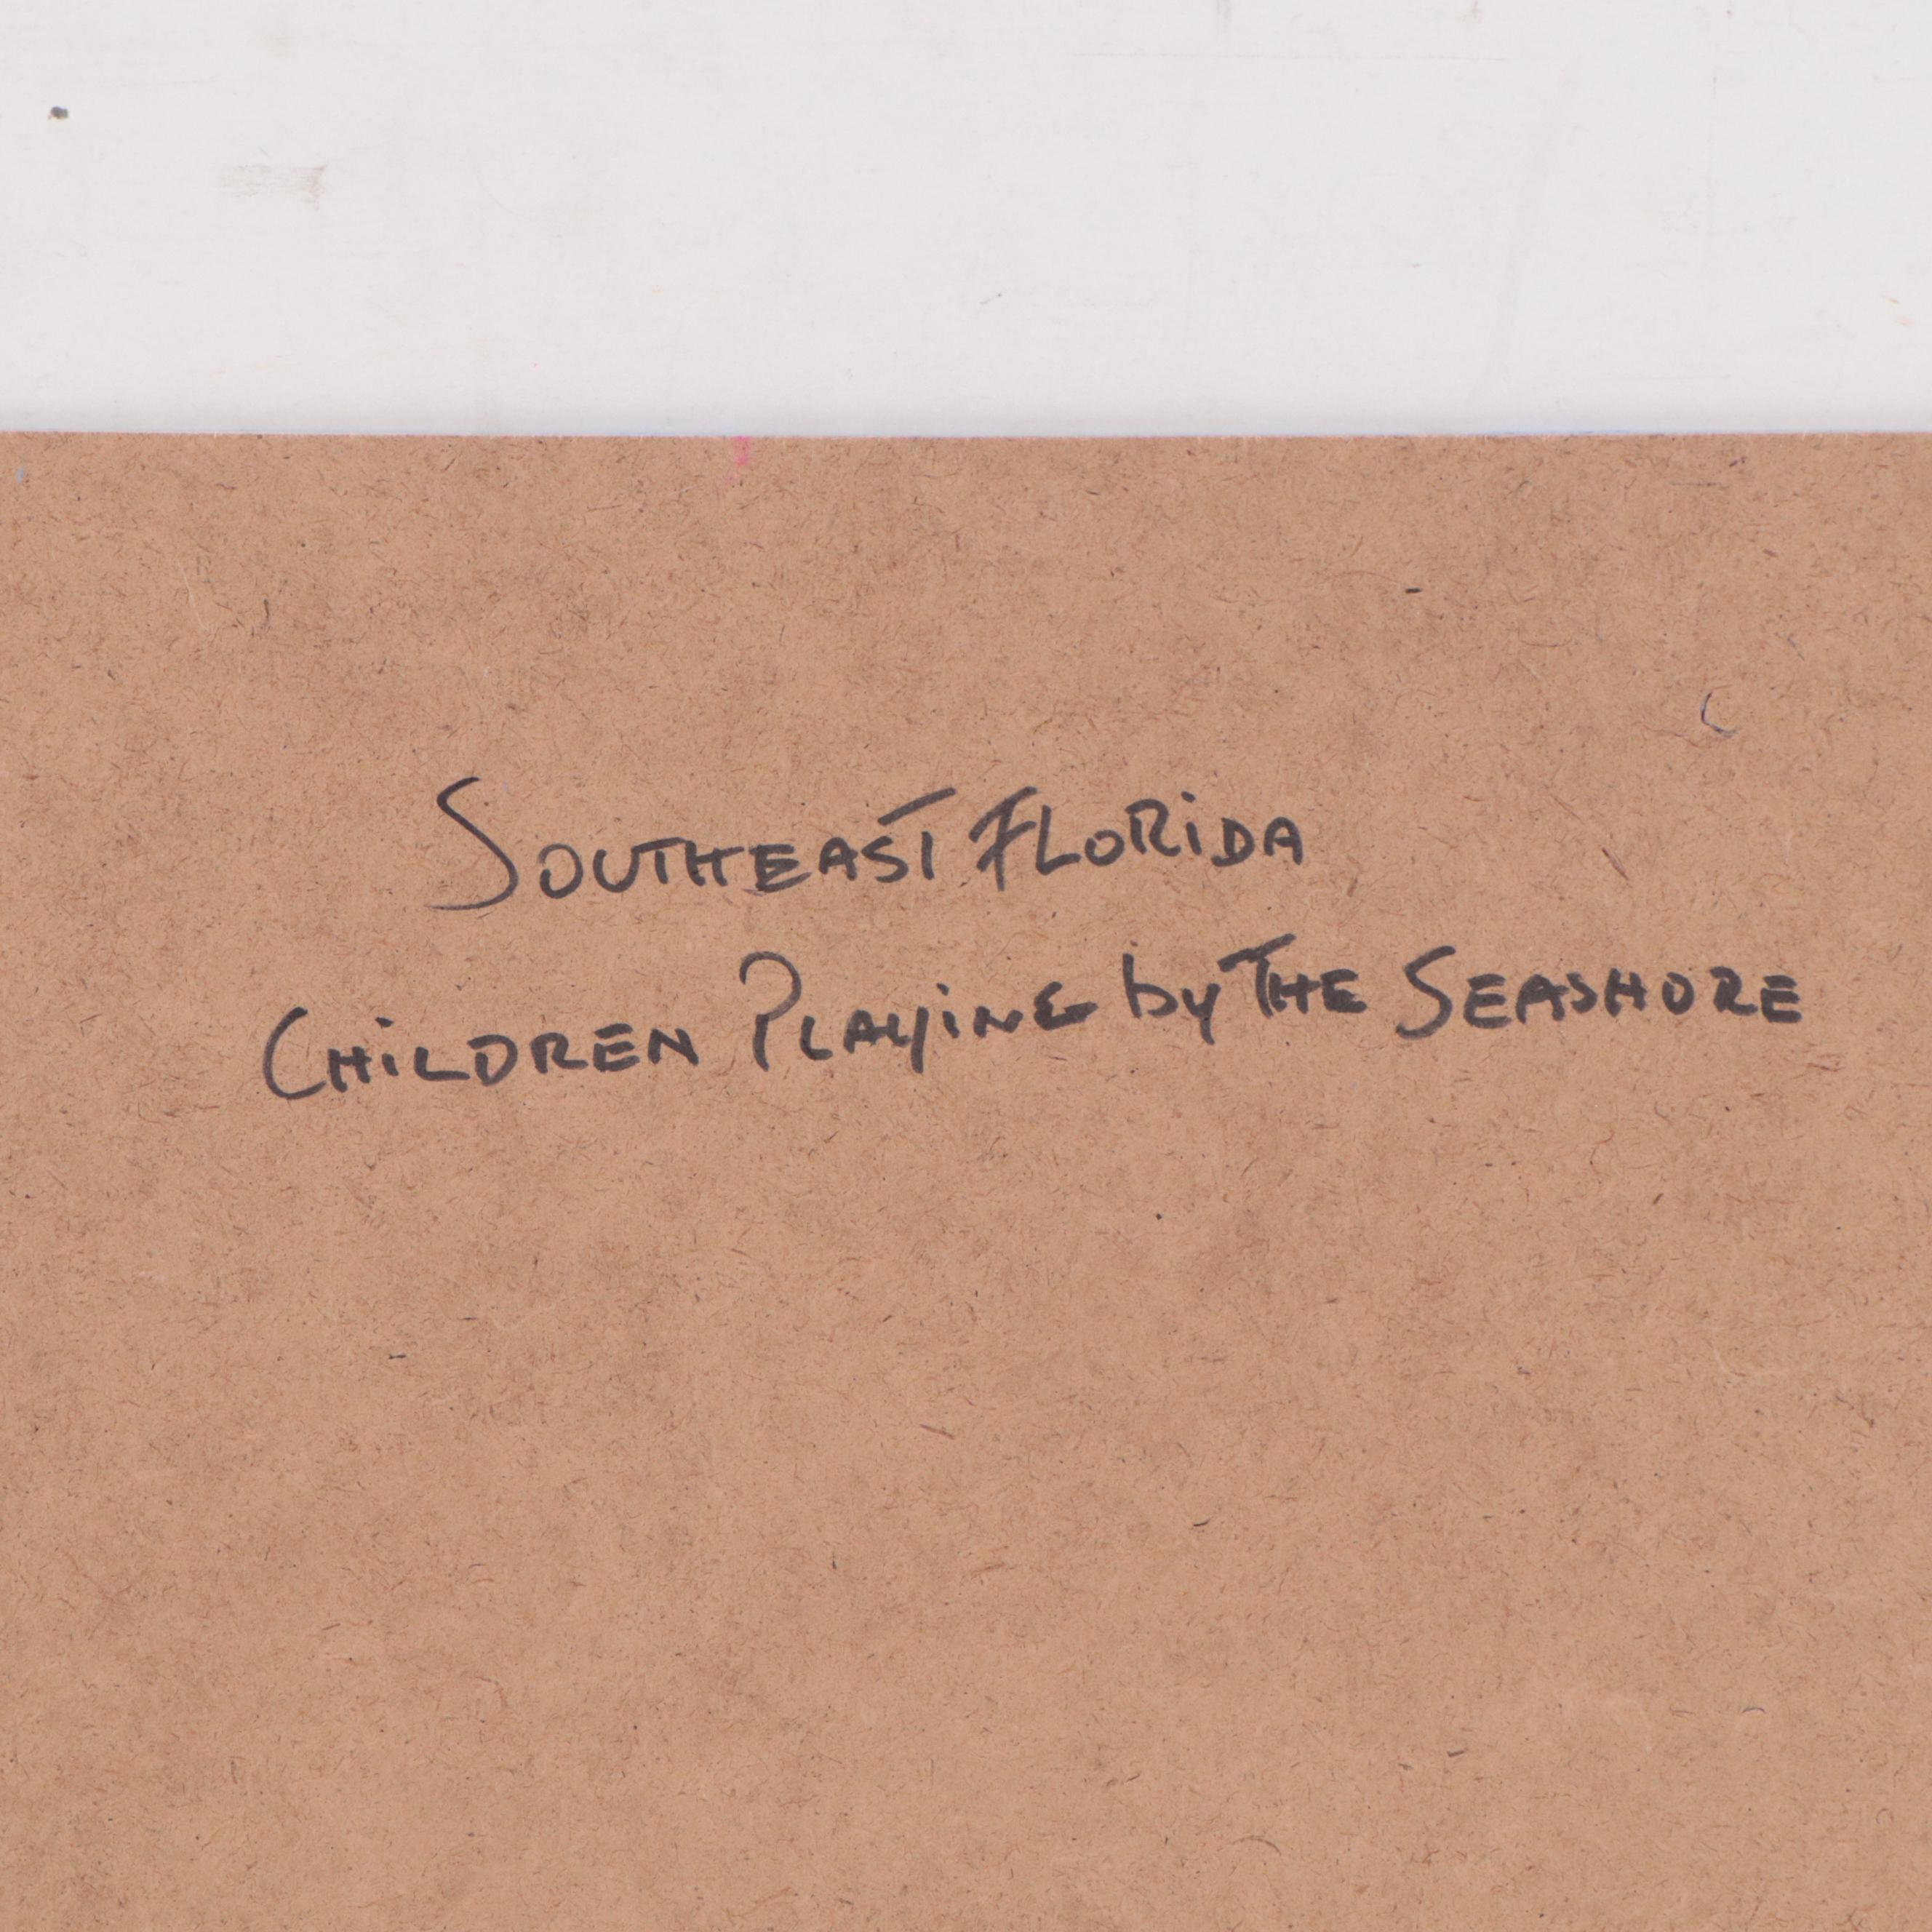 Southeast Florida
Children Playing by The Seashore